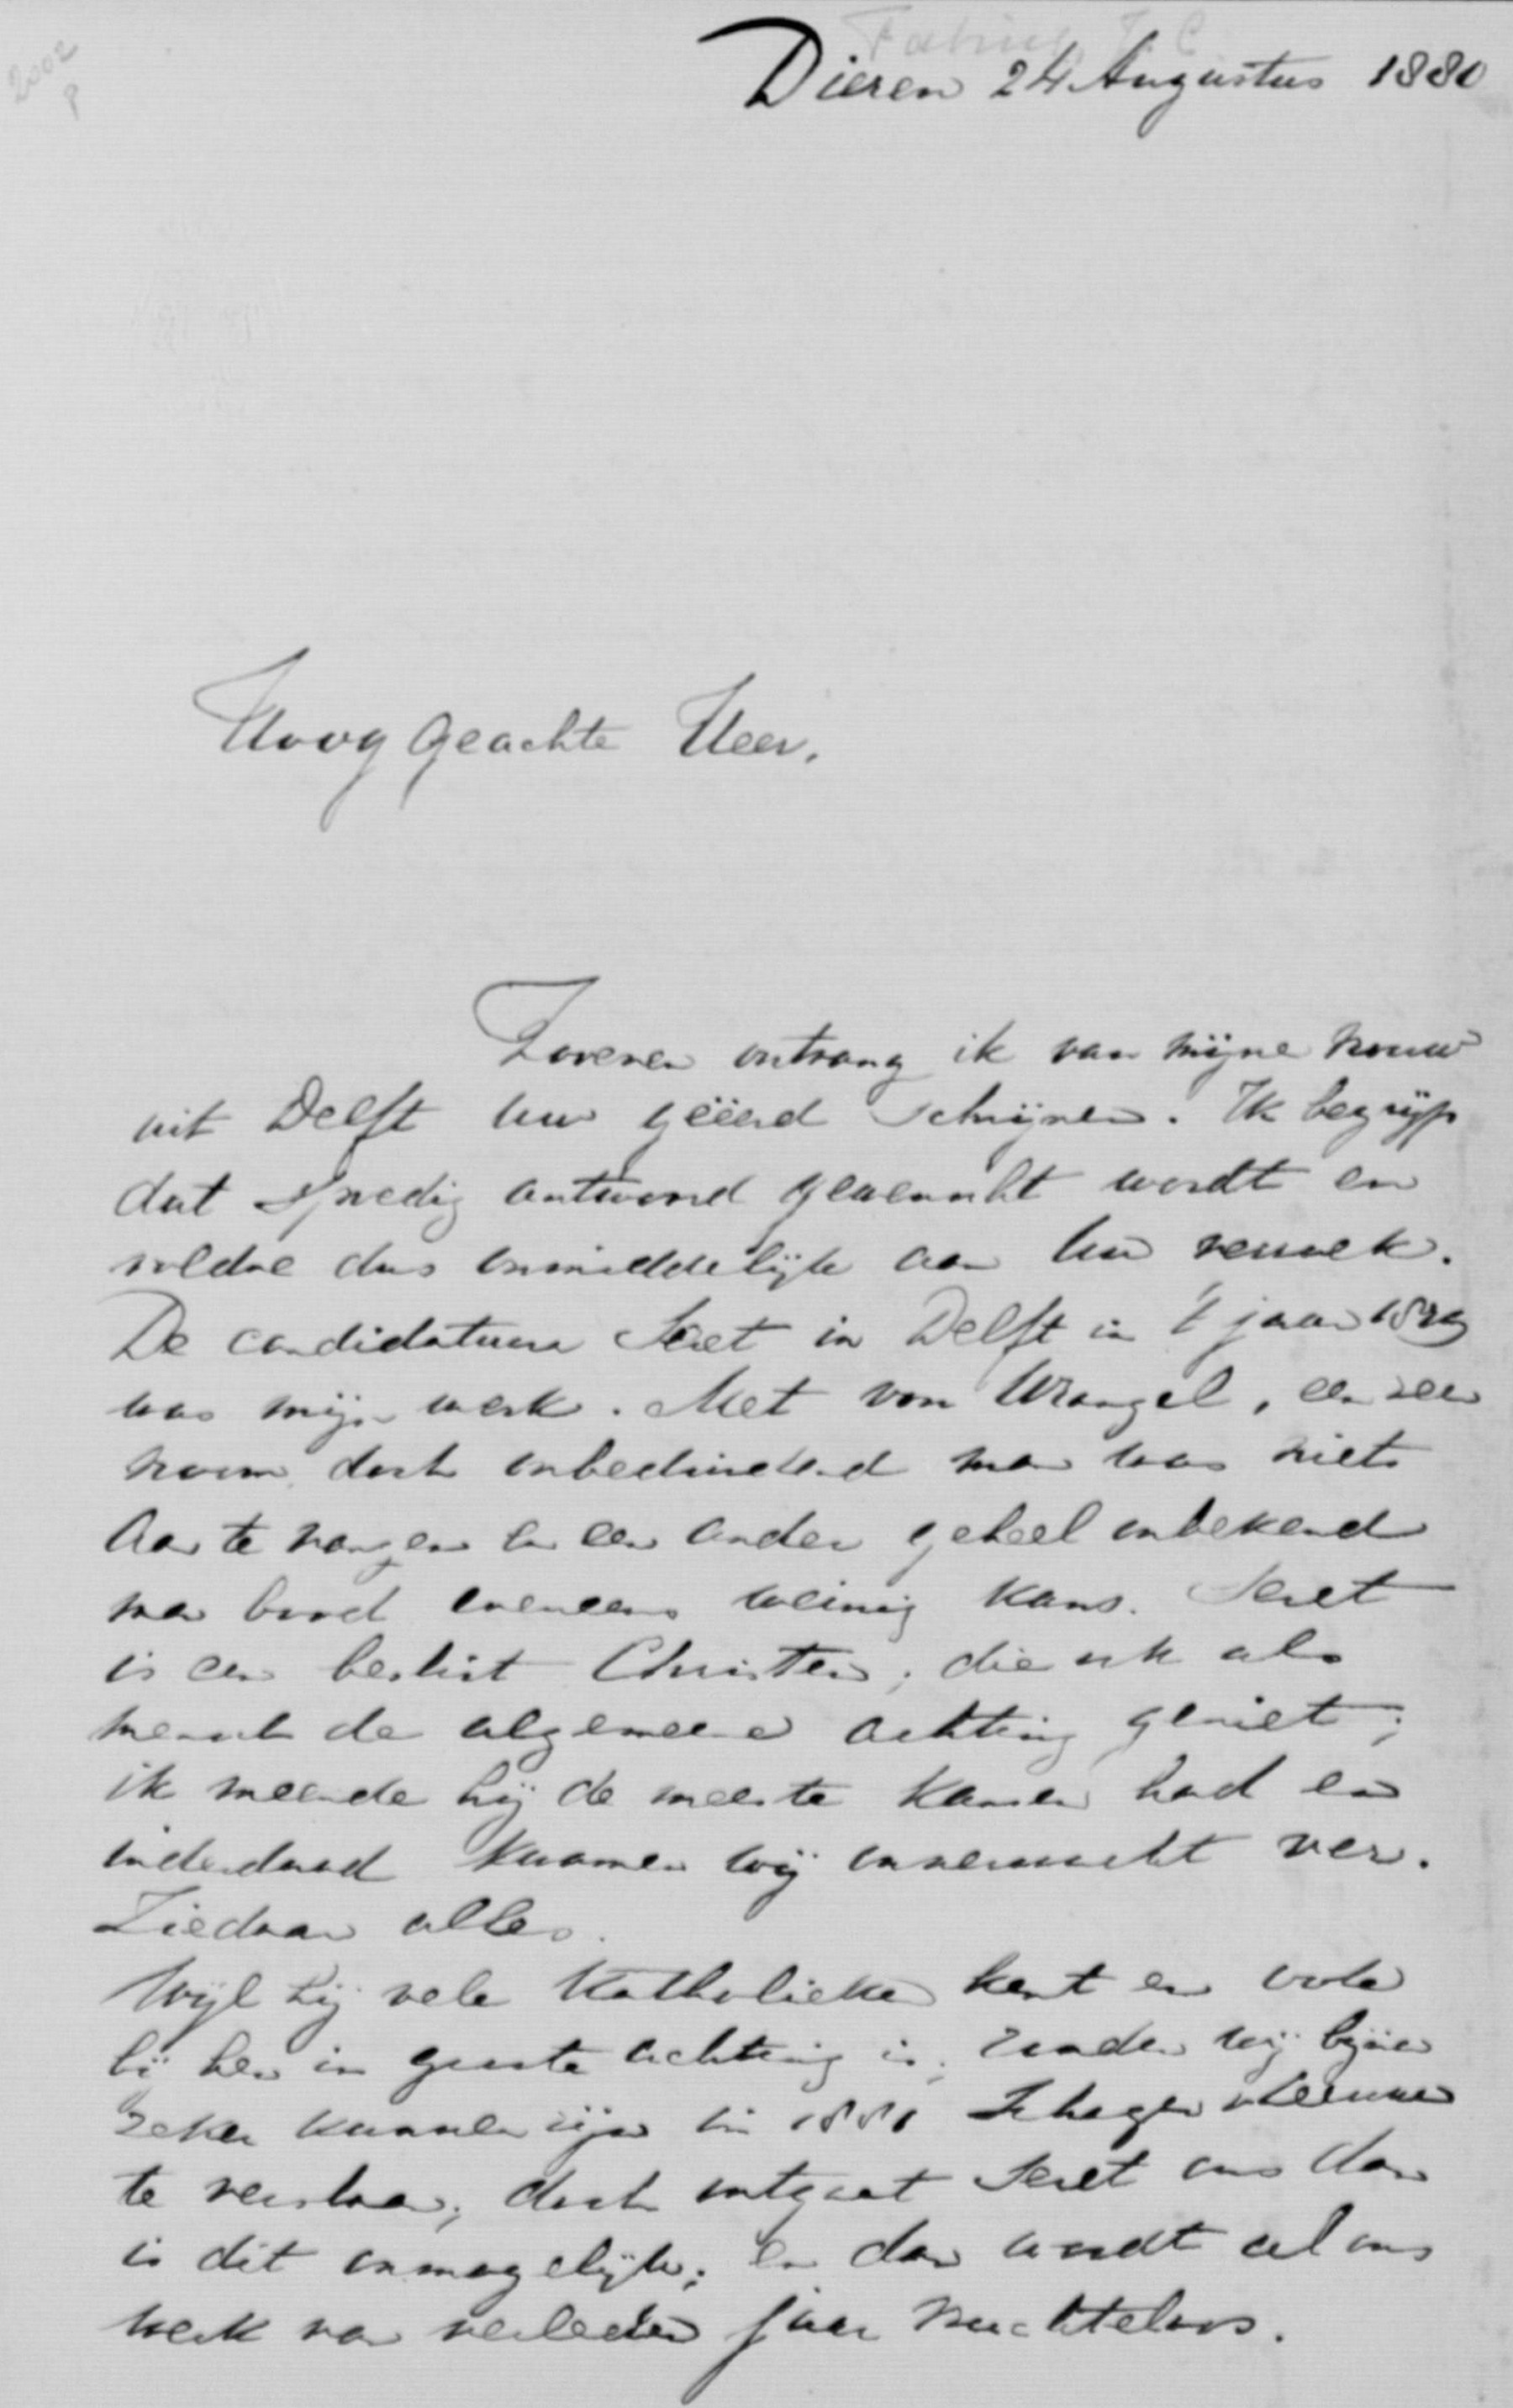 2002
Fabius, J. C.
Dieren 24 Augustus 1880
Hoog Geachte Heer,
Zoveven ontvang ik van mijne vrouw
uit Delft uw geëerd schrijven. Ik begrijp
dat spoedig antwoord gewenscht wordt en
voldoe dus onmiddelijk aan Uw verzoek.
De candidatuur Seret in Delft in 't jaar 1879
was mijn werk. Met von Wrangel, een zeer
vroom doch onbeduidend man was niets
aan te vangen en een ander geheel onbekend
man bood eveneens weinig kans. Seret
is een beslist Christen, die ook als
mensch de algemeene achting geniet;
ik meende hij de meeste kansen had en
inderdaad kwamen wij onverwacht ver.
Ziedaar alles.
Wijl hij vele Katholieken kent en ook
bij hen in groote achting is, zouden wij bijna
zeker kunnen zijn in 1881 Schagen v Leeuwen
te verslaan; doch ontgaat Seret ons dan
is dit onmogelijk; en dan wordt al ons
werk van verleden jaar vruchteloos.